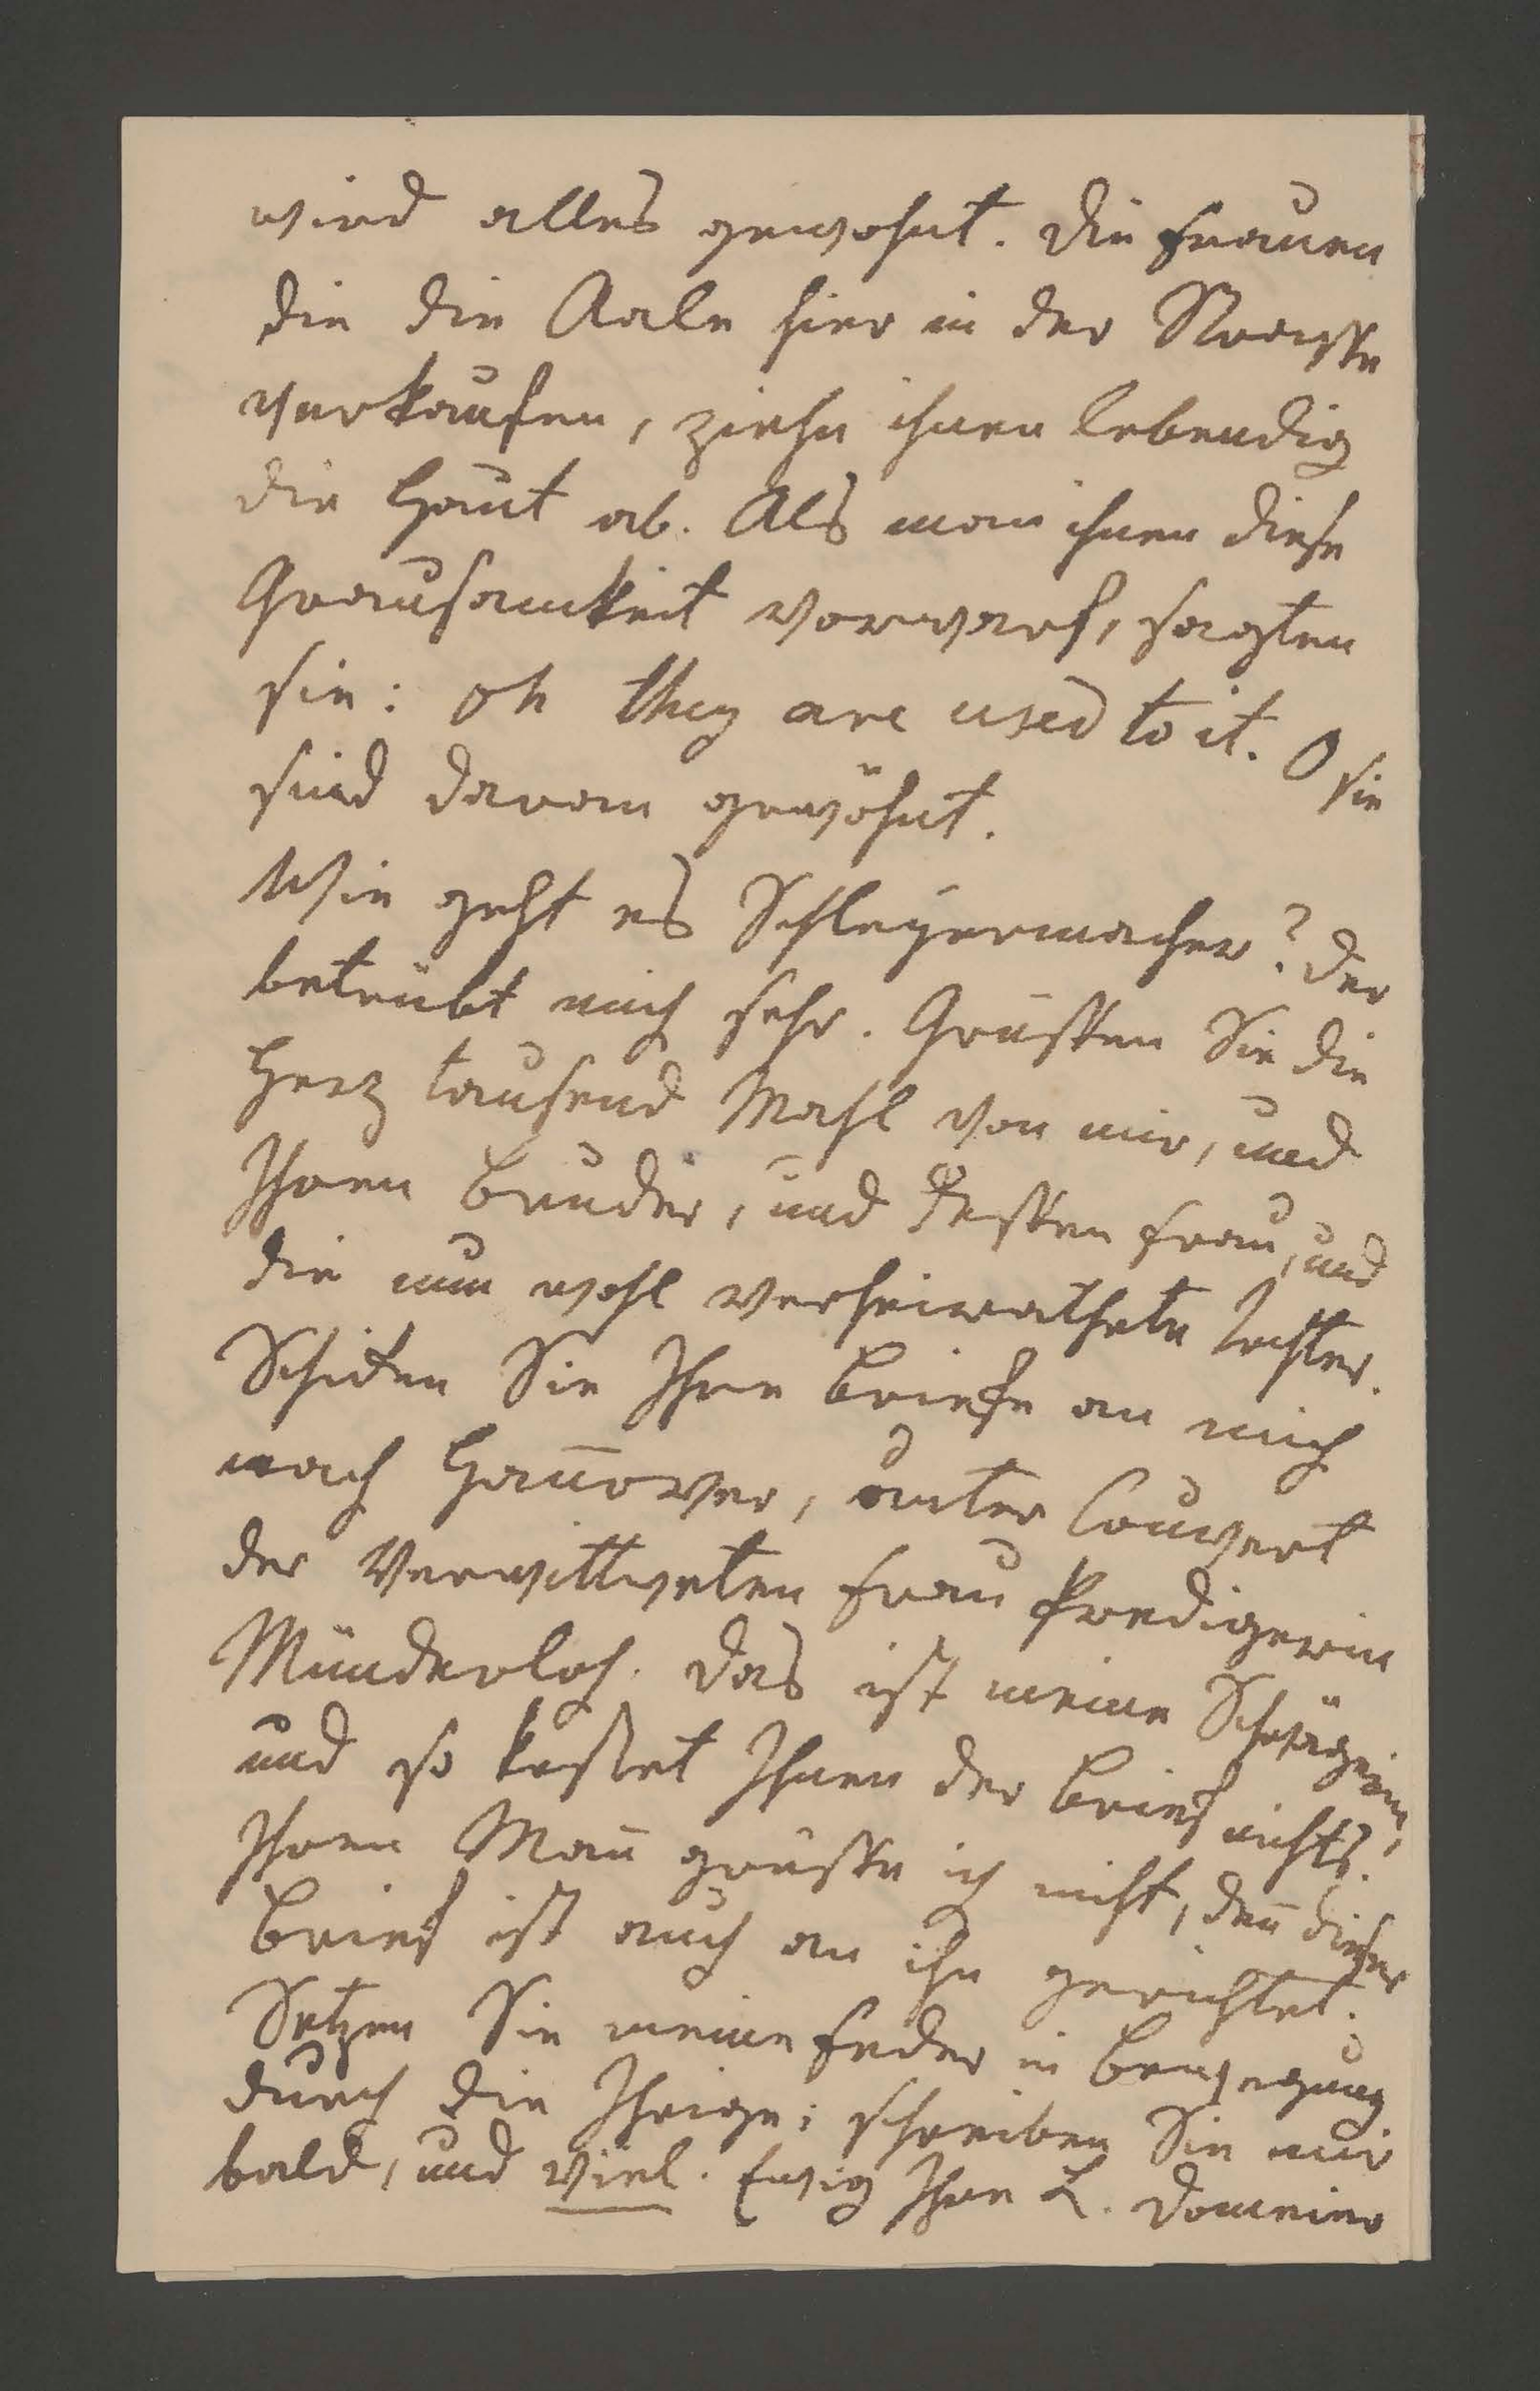 wird alles gewohnt. Die Frauen
die die Aale hier in der Strasse
verkaufen, ziehn ihnen lebendig
die Haut ab. Als man ihnen diese
Grausamkeit vorwarf, sagten
sie: oh they are used to it. O sie
sind daran gewöhnt.
Wie geht es Schleyermacher? der
betrübt mich sehr. Grüssen Sie die
Herz tausend Mahl von mir, und
Ihren Bruder, und dessen Frau, und
die nun wohl verheirathete Tochter.
Schicken Sie Ihre Briefe an mich
nach Han̅over, unter Couvert
der Verwittweten Frau Predigerin
Münderloh. Das ist meine Schwägerin,
und so kostet Ihnen der Brief nichts.
Ihren Man̅ grüsse ich nicht, den̅ dieser
Brief ist auch an ihn gerichtet.
Setzen Sie meine Feder in Bewegung
durch die Ihrige; schreiben Sie mir
bald, und viel. Ewig Ihre L. Domeier